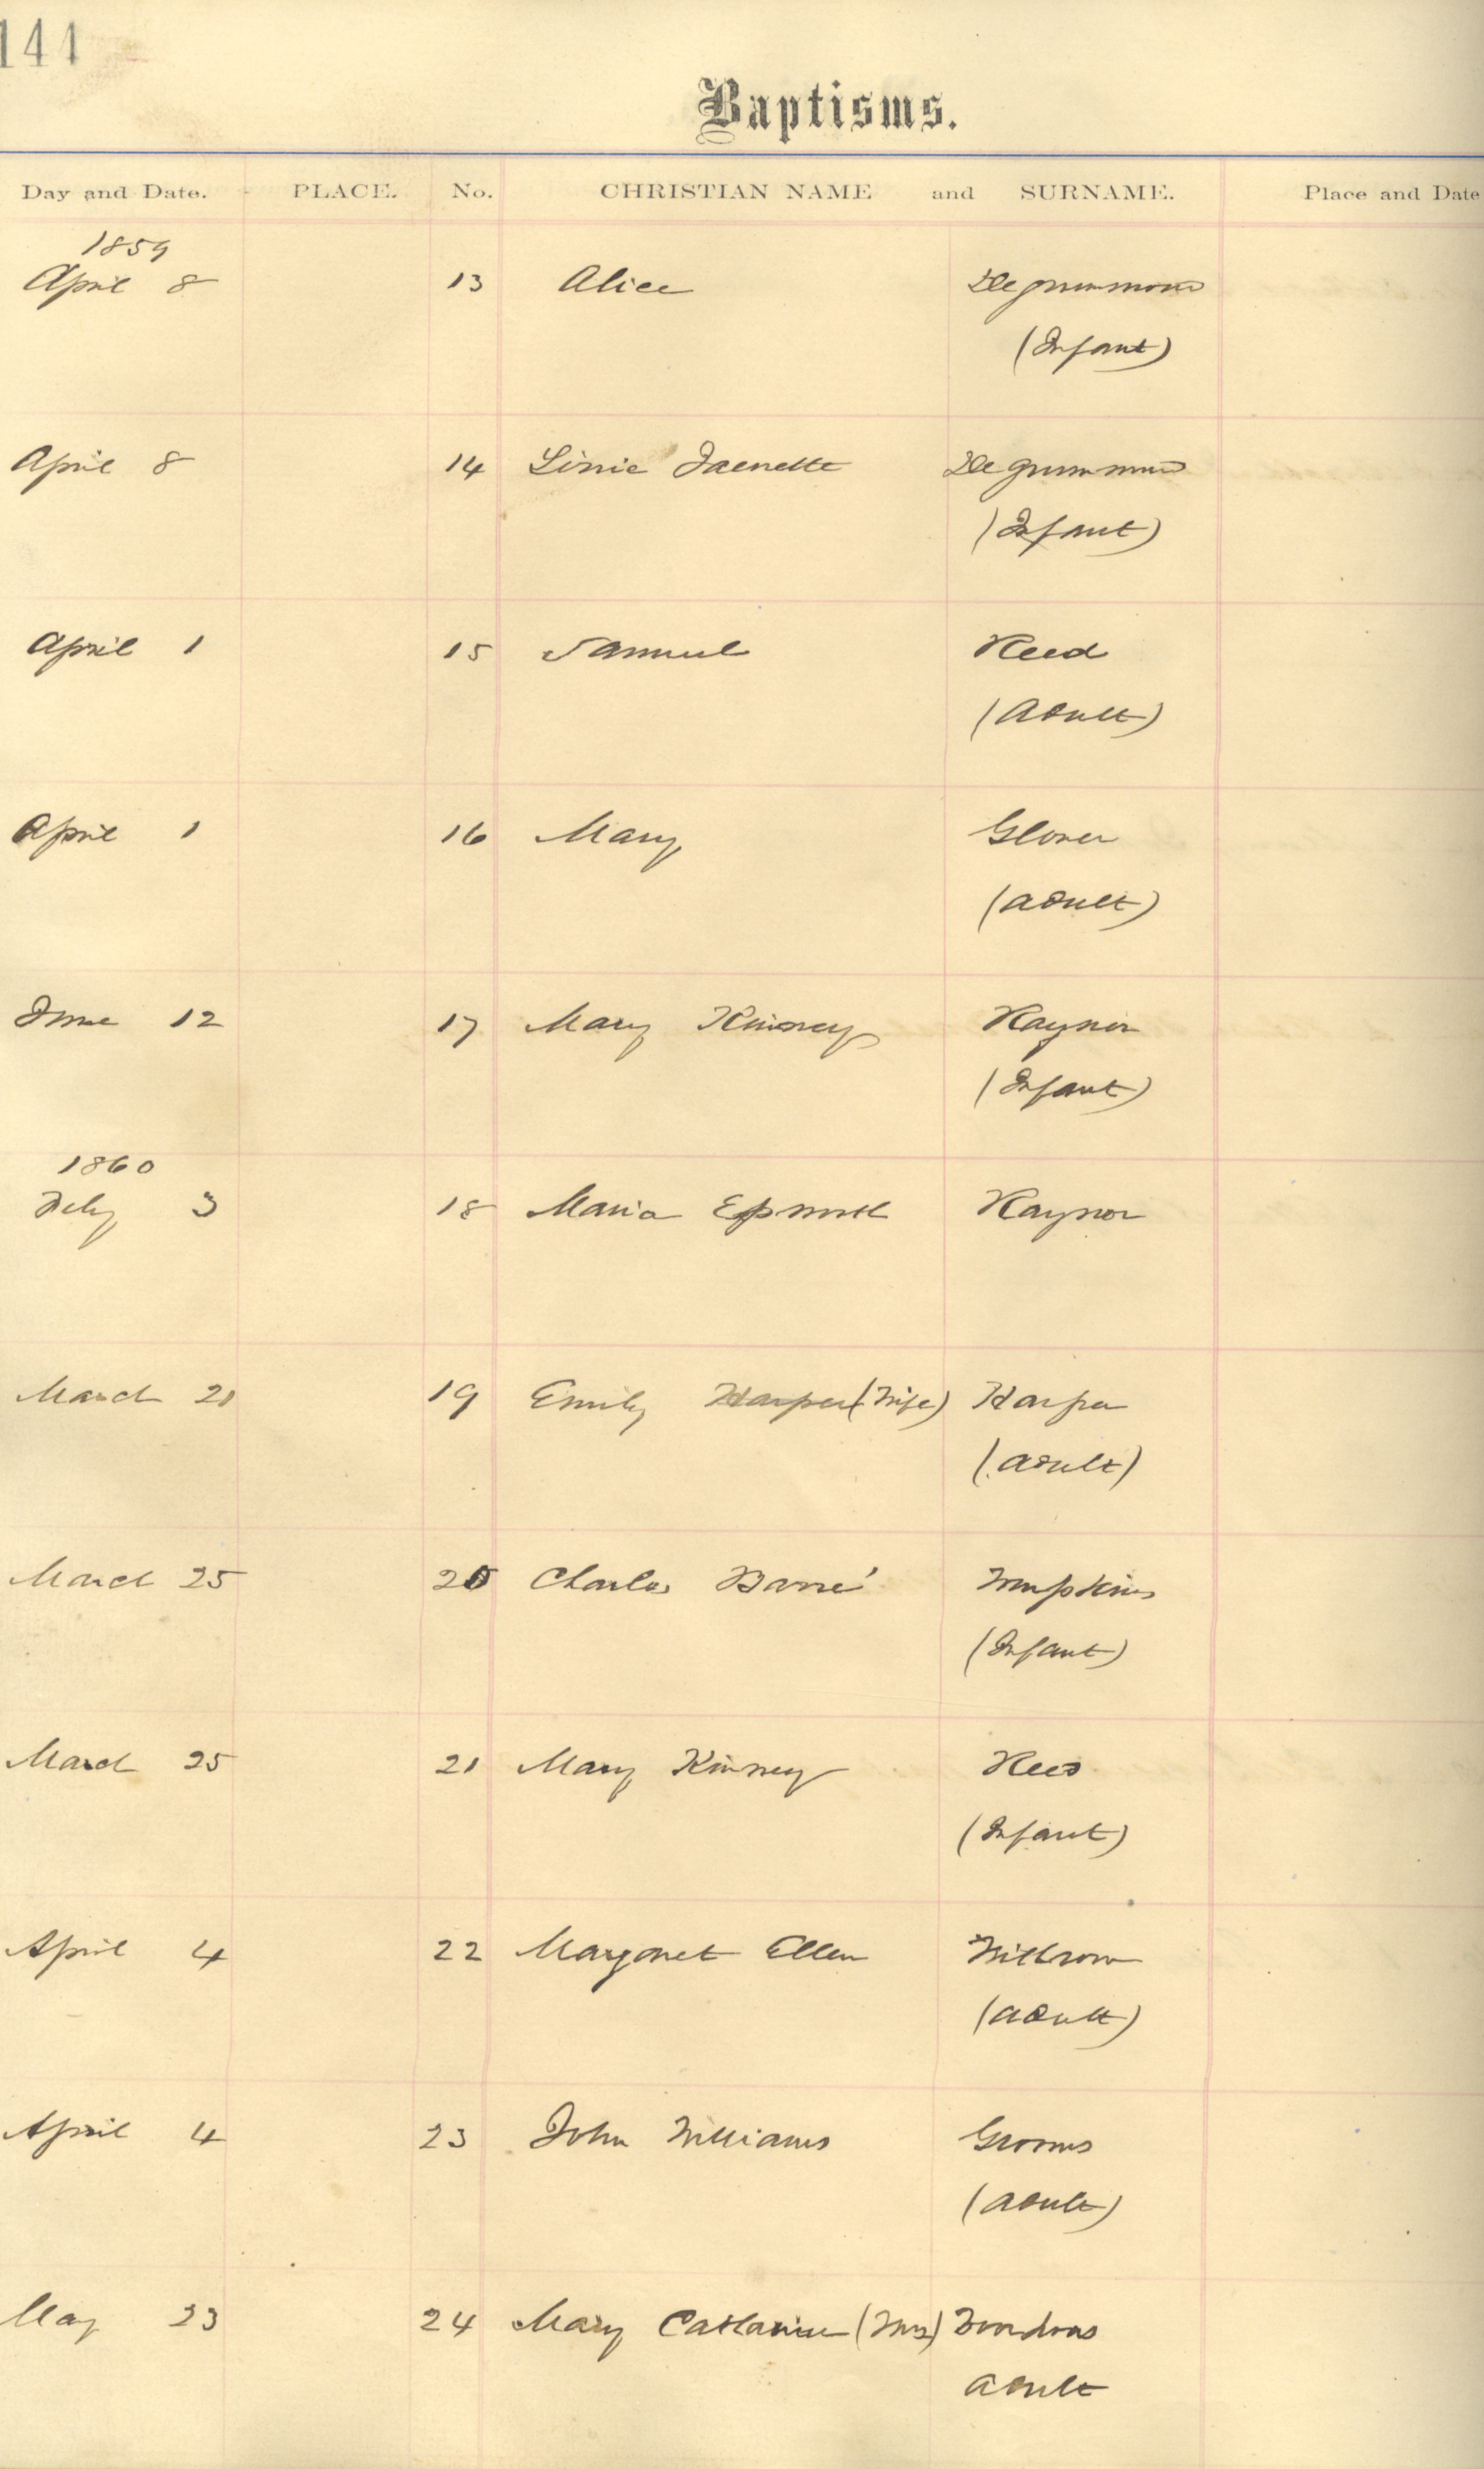 144
Baptisms.
Day and Date. PLACE. No. CHRISTIAN NAME and SURNAME. Place and Date
1859
April 8 13 Alice Degrummond
(Infant)
April 8 14 Jaenette Degrummond
(Infant)
April 1 15 Samuel Reed
(Adult)
April 1 16 Mary Glover
(Adult)
June 12 17 Mary Kinney Raynor
(Infant)
1860
Feby 3 18 Maria Raynor
March 21 19 Emily Harper (Wife) Harper
(Adult)
March 25 20 Charles Barré Tompkins
(Infant)
March 25 21 Mary Kinney Reed
(Infant)
April 4 22 Margaret Ellen Withrow
(Adult)
April 4 23 John Williams Grooms
(Adult)
May 23 24 Mary Catharine (Mrs)
Adult